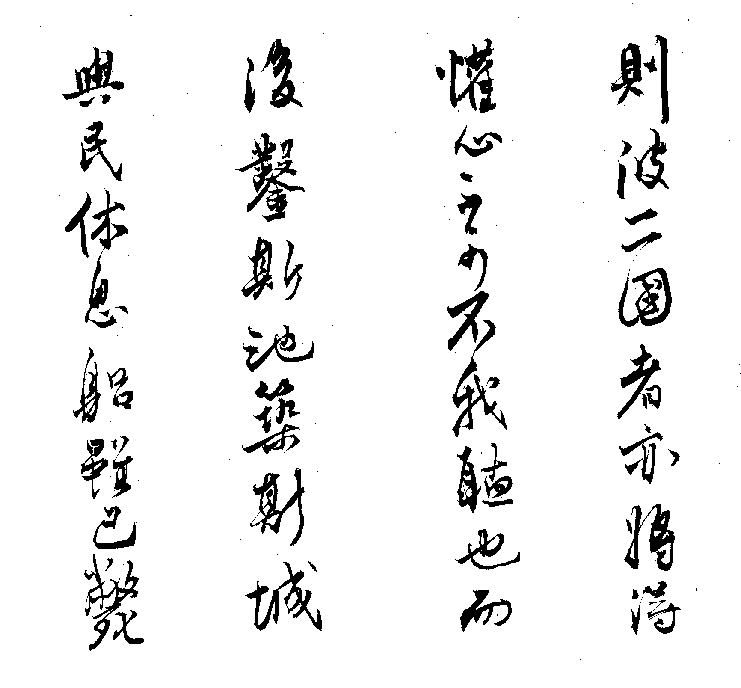 則彼二國者亦將得
懽心不我聽也而
後鑿斯池築斯城
與民休息躳雖已斃